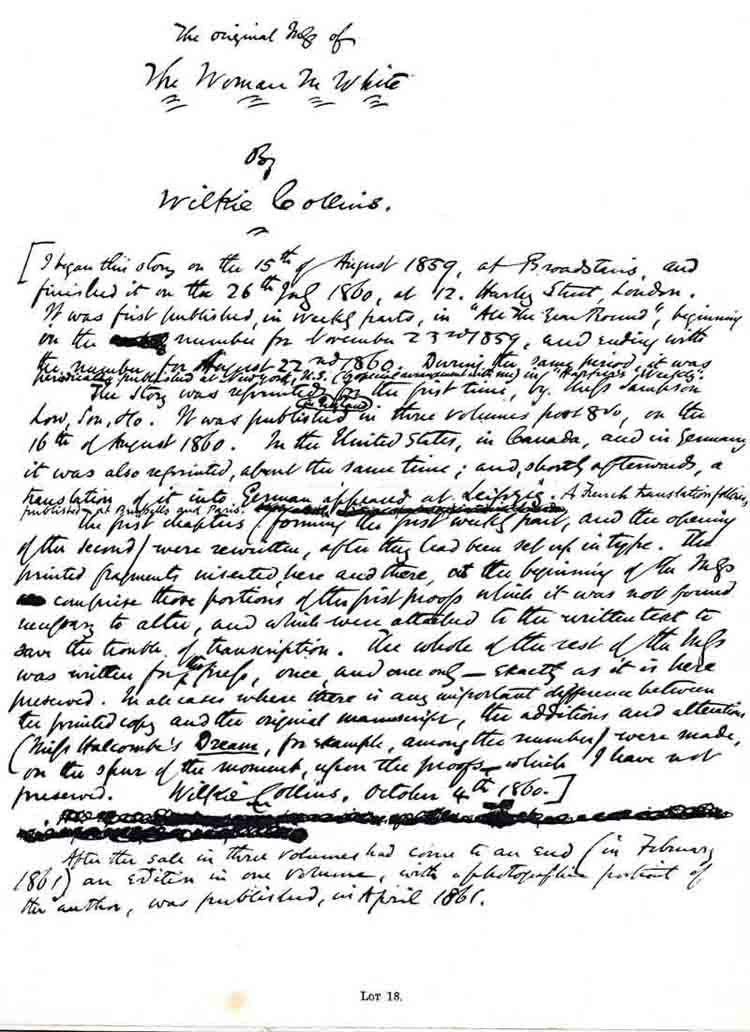 The original MS of
The Woman In White
By
Wilkie Collins.
[I began this story on the 15th of August 1859, at Broadstairs, and
finished it on the 26th July 1860, at 12. Harley Street, London.
It was first published, in weekly parts, in "All The Year Round", beginning
in the number for November 23rd 1859, and ending with
the number for August 22nd 1860. During the same period, it was
periodically published at New York, U.S. (by special arrangement with me) in "Harper's Weekly".
The story was reprinted for the first time, by Messrs Sampson
in England
Low, Son, & Co. It was published in three volumes post 8vo, on the
16th of August 1860. In the United States, in Canada, and in Germany
it was also reprinted, about the same time; and, shortly afterwards, a
translation of it into German appeared at Leipzig. A French translation follows,
published at Brussells and Paris.
The first chapters (forming the first weekly part, and the opening
of the second) were rewritten, after they had been set up in type. The
printed fragments inserted, here and there, at the beginning of the MS
comprise those portions of the first proofs which it was not found
necessary to alter, and which were attached to the written text to
save the trouble of transcription. The whole of the rest of the MS
was written for the press, once, and once only – exactly as it is here
preserved. In all cases where there is any important difference between
the printed copy and the original manuscript, the additions and alterations
(Miss Halcombe's Dream, for example, among the number) were made,
on the spur of the moment, upon the proofs – which I have not
preserved. Wilkie Collins. October 4th 1860.]
After the sale in three volumes had come to an end (in February
1861) an edition in one volume, with a photographic portrait of
the author, was published, in April 1861.
Lot 18.